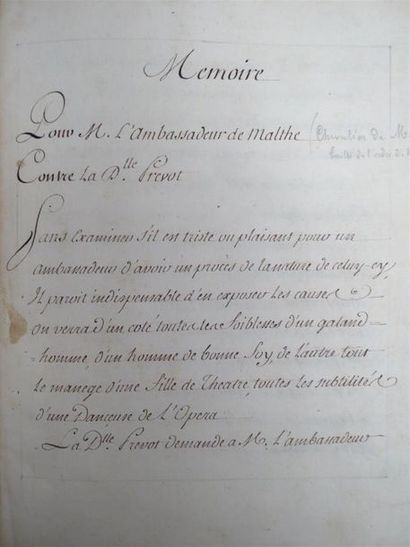 Memoire
Pour M. L'ambassadeur de Malthe (Chevalier de M
Contre La D.lle Prevot
Sans Examiner s'il est triste ou plaisant pour un
ambassadeur d'avoir un procès de la nature de celuy-cy
Il paroit indispensable d'en exposer les causes
on verra d'un coté toutes les foiblesses d'un galand=
=homme, d'un homme de bonne foy, de l'autre tout
le manege d'une fille de Theatre, toutes les subtilités
d'une Danceuse de L'Opera
La D.lle Prevot demande a M. L'ambassadeur